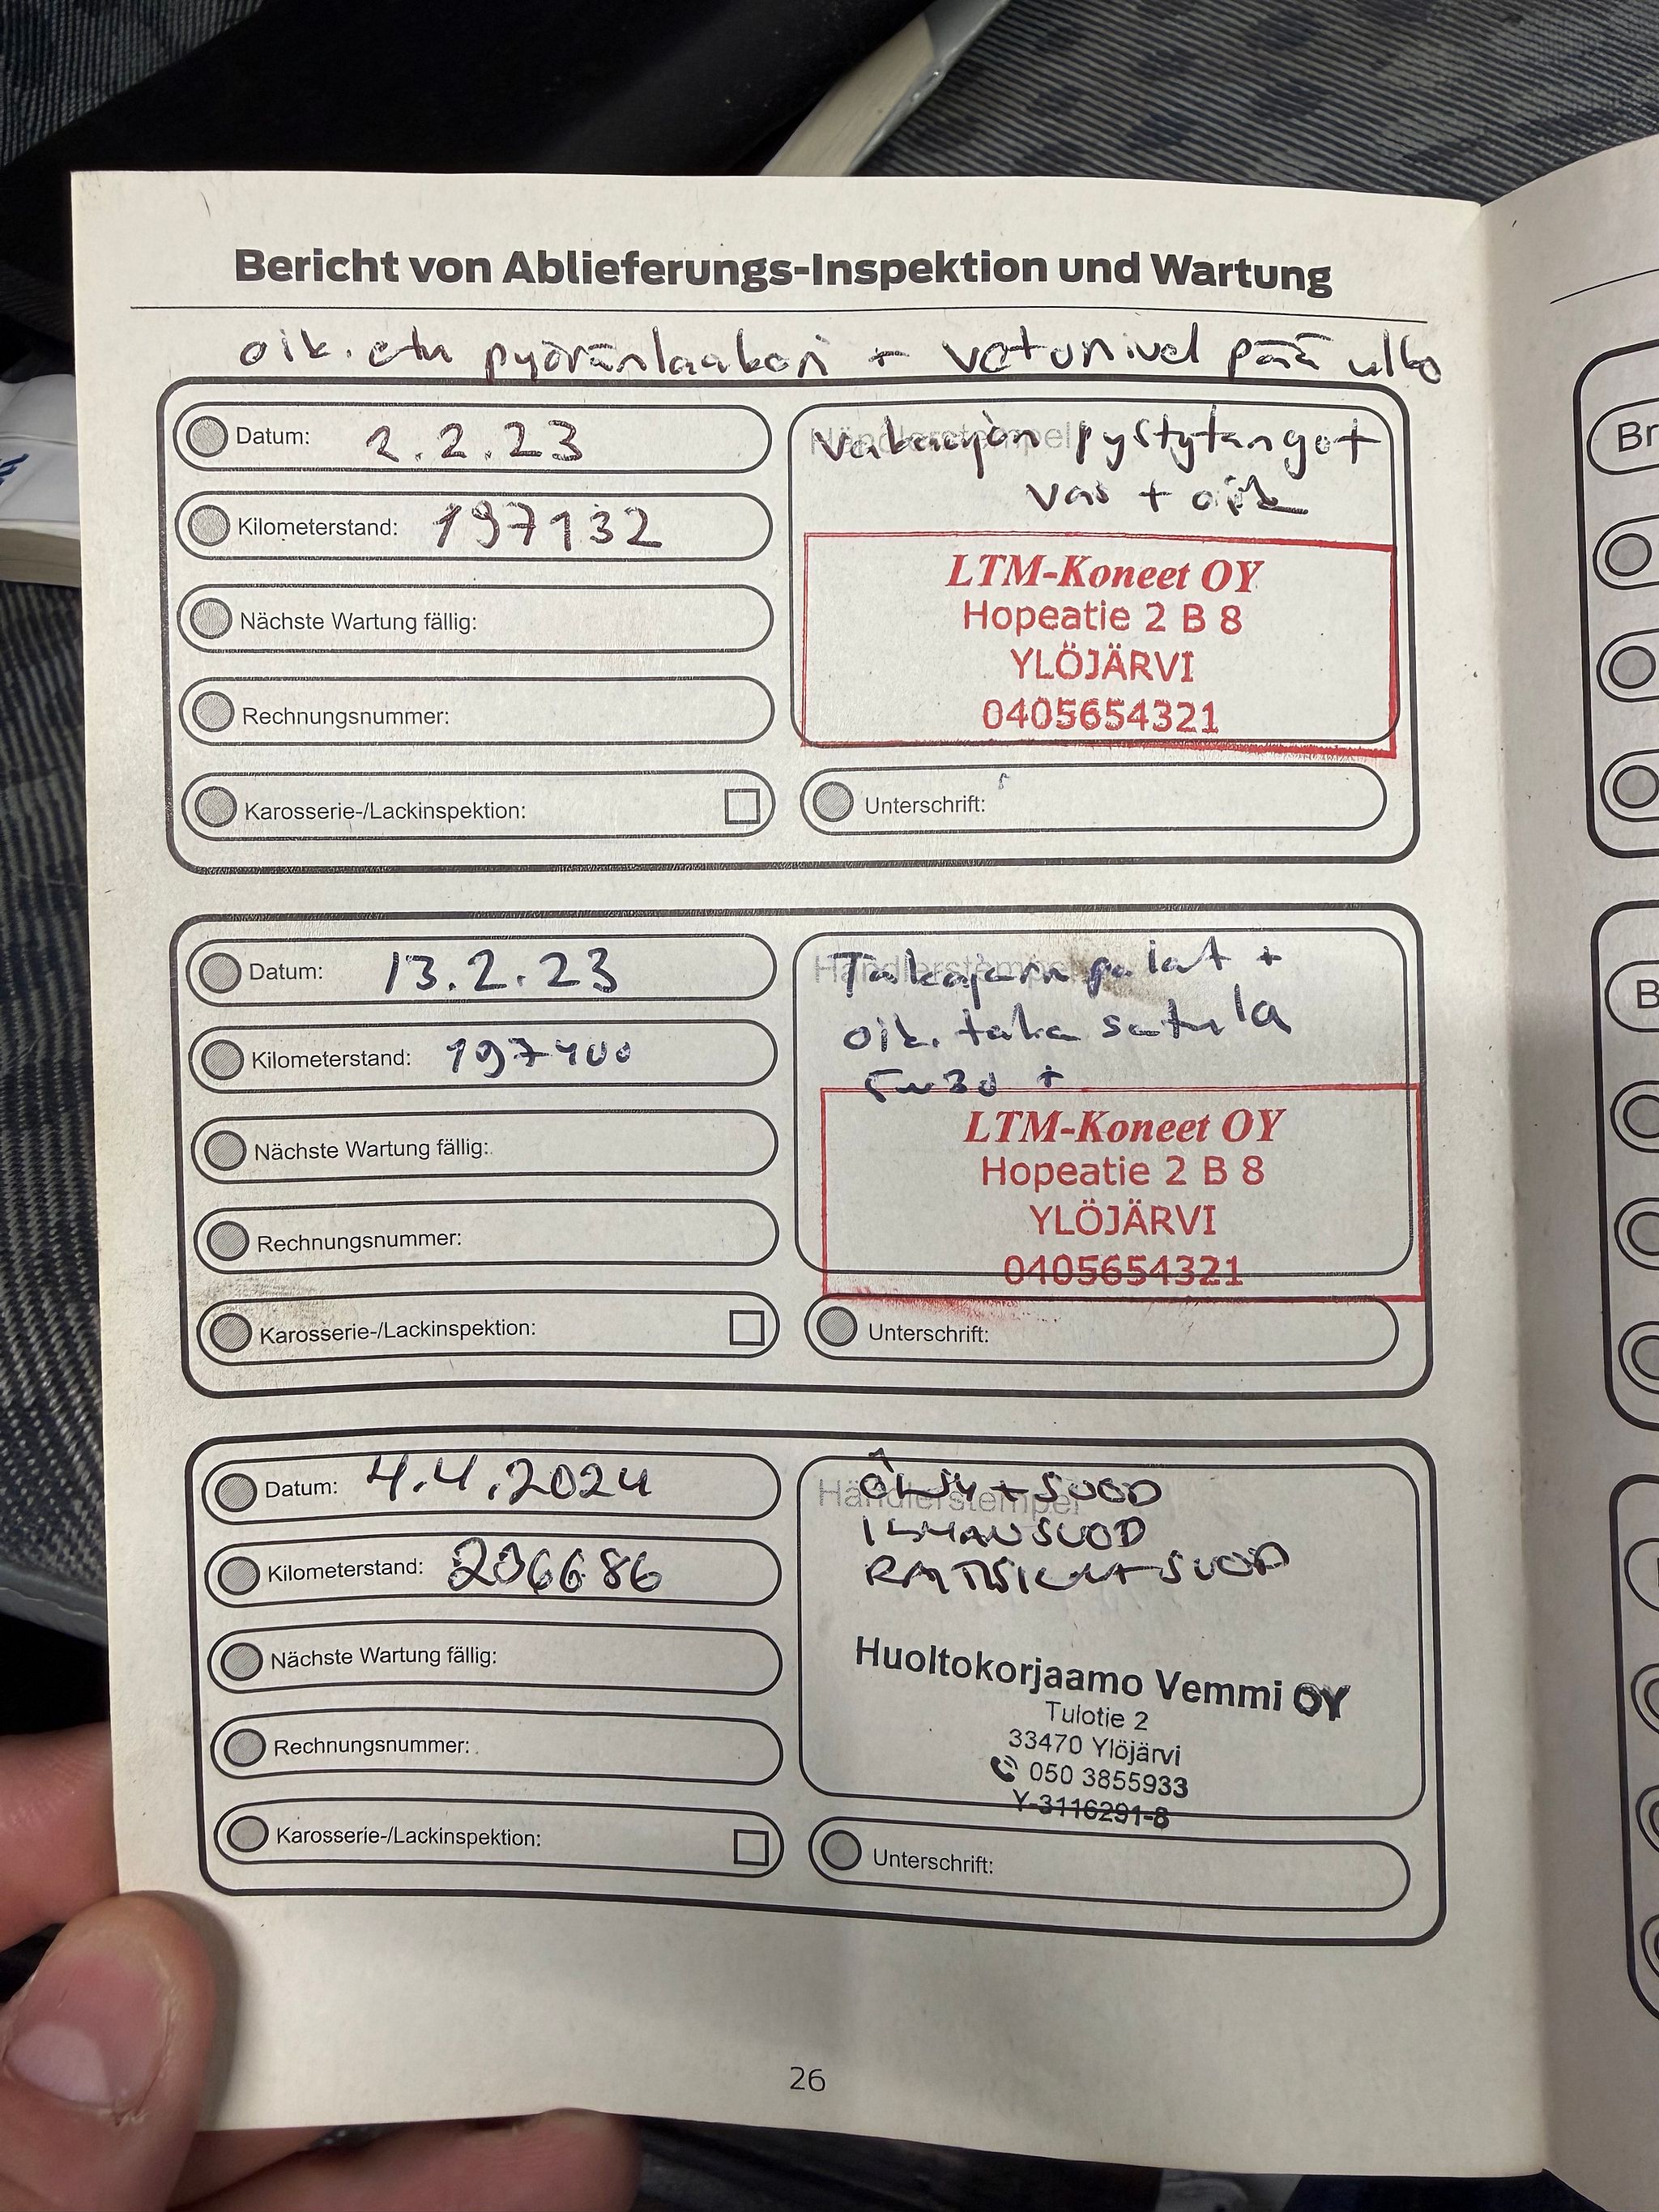 Bericht von Ablieferungs-Inspektion und Wartung
oik. etu pyöränlaakeri + vetonivel pää ulko
Datum: 2.2.23
Händlerstempel
vakaajan pystytangot
vas + oik
Kilometerstand: 197132
LTM-Koneet OY
Hopeatie 2 B 8
YLÖJÄRVI
0405654321
Nächste Wartung fällig:
Rechnungsnummer:
Karosserie-/Lackinspektion:
Unterschrift:
Datum: 13.2.23
Händlerstempel
Takajarrupalat +
oik. taka satula
5w30 +
Kilometerstand: 197400
LTM-Koneet OY
Hopeatie 2 B 8
YLÖJÄRVI
0405654321
Nächste Wartung fällig:
Rechnungsnummer:
Karosserie-/Lackinspektion:
Unterschrift:
Datum: 4.4.2024
Händlerstempel
ÖLJY + SUOD
ILMANSUOD
RAITISILMASUOD
Kilometerstand: 206686
Huoltokorjaamo Vemmi OY
Tulotie 2
33470 Ylöjärvi
050 3855933
Y-3116291-8
Nächste Wartung fällig:
Rechnungsnummer:
Karosserie-/Lackinspektion:
Unterschrift:
26
Br
B